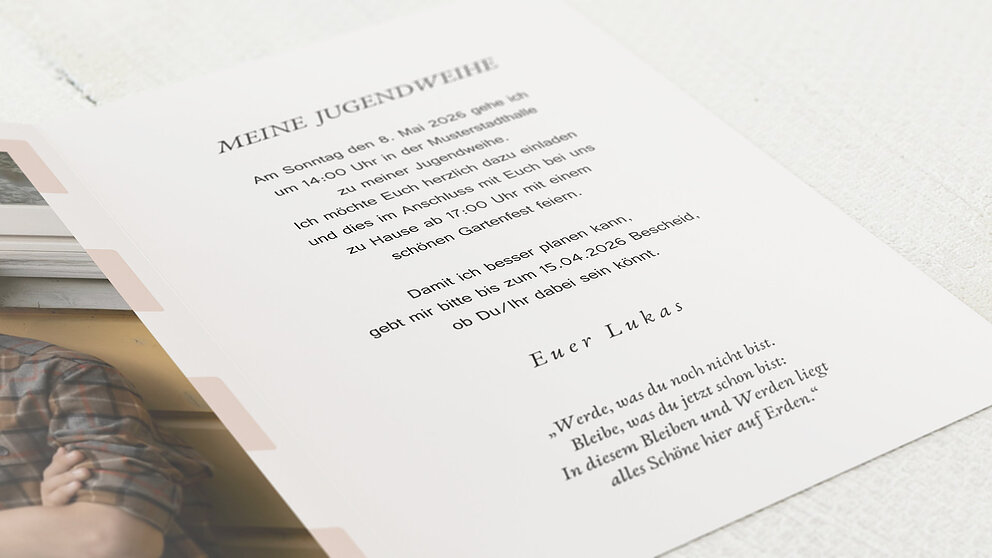 MEINE JUGENDWEIHE
Am Sonntag den 8. Mai 2026 gehe ich
um 14:00 Uhr in der Musterstadthalle
zu meiner Jugendweihe.
Ich möchte Euch herzlich dazu einladen
und dies im Anschluss mit Euch bei uns
zu Hause ab 17:00 Uhr mit einem
schönen Gartenfest feiern.
Damit ich besser planen kann,
gebt mir bitte bis zum 15.04.2026 Bescheid,
ob Du/Ihr dabei sein könnt.
Euer Lukas
„Werde, was du noch nicht bist.
Bleibe, was du jetzt schon bist:
In diesem Bleiben und Werden liegt
alles Schöne hier auf Erden.“